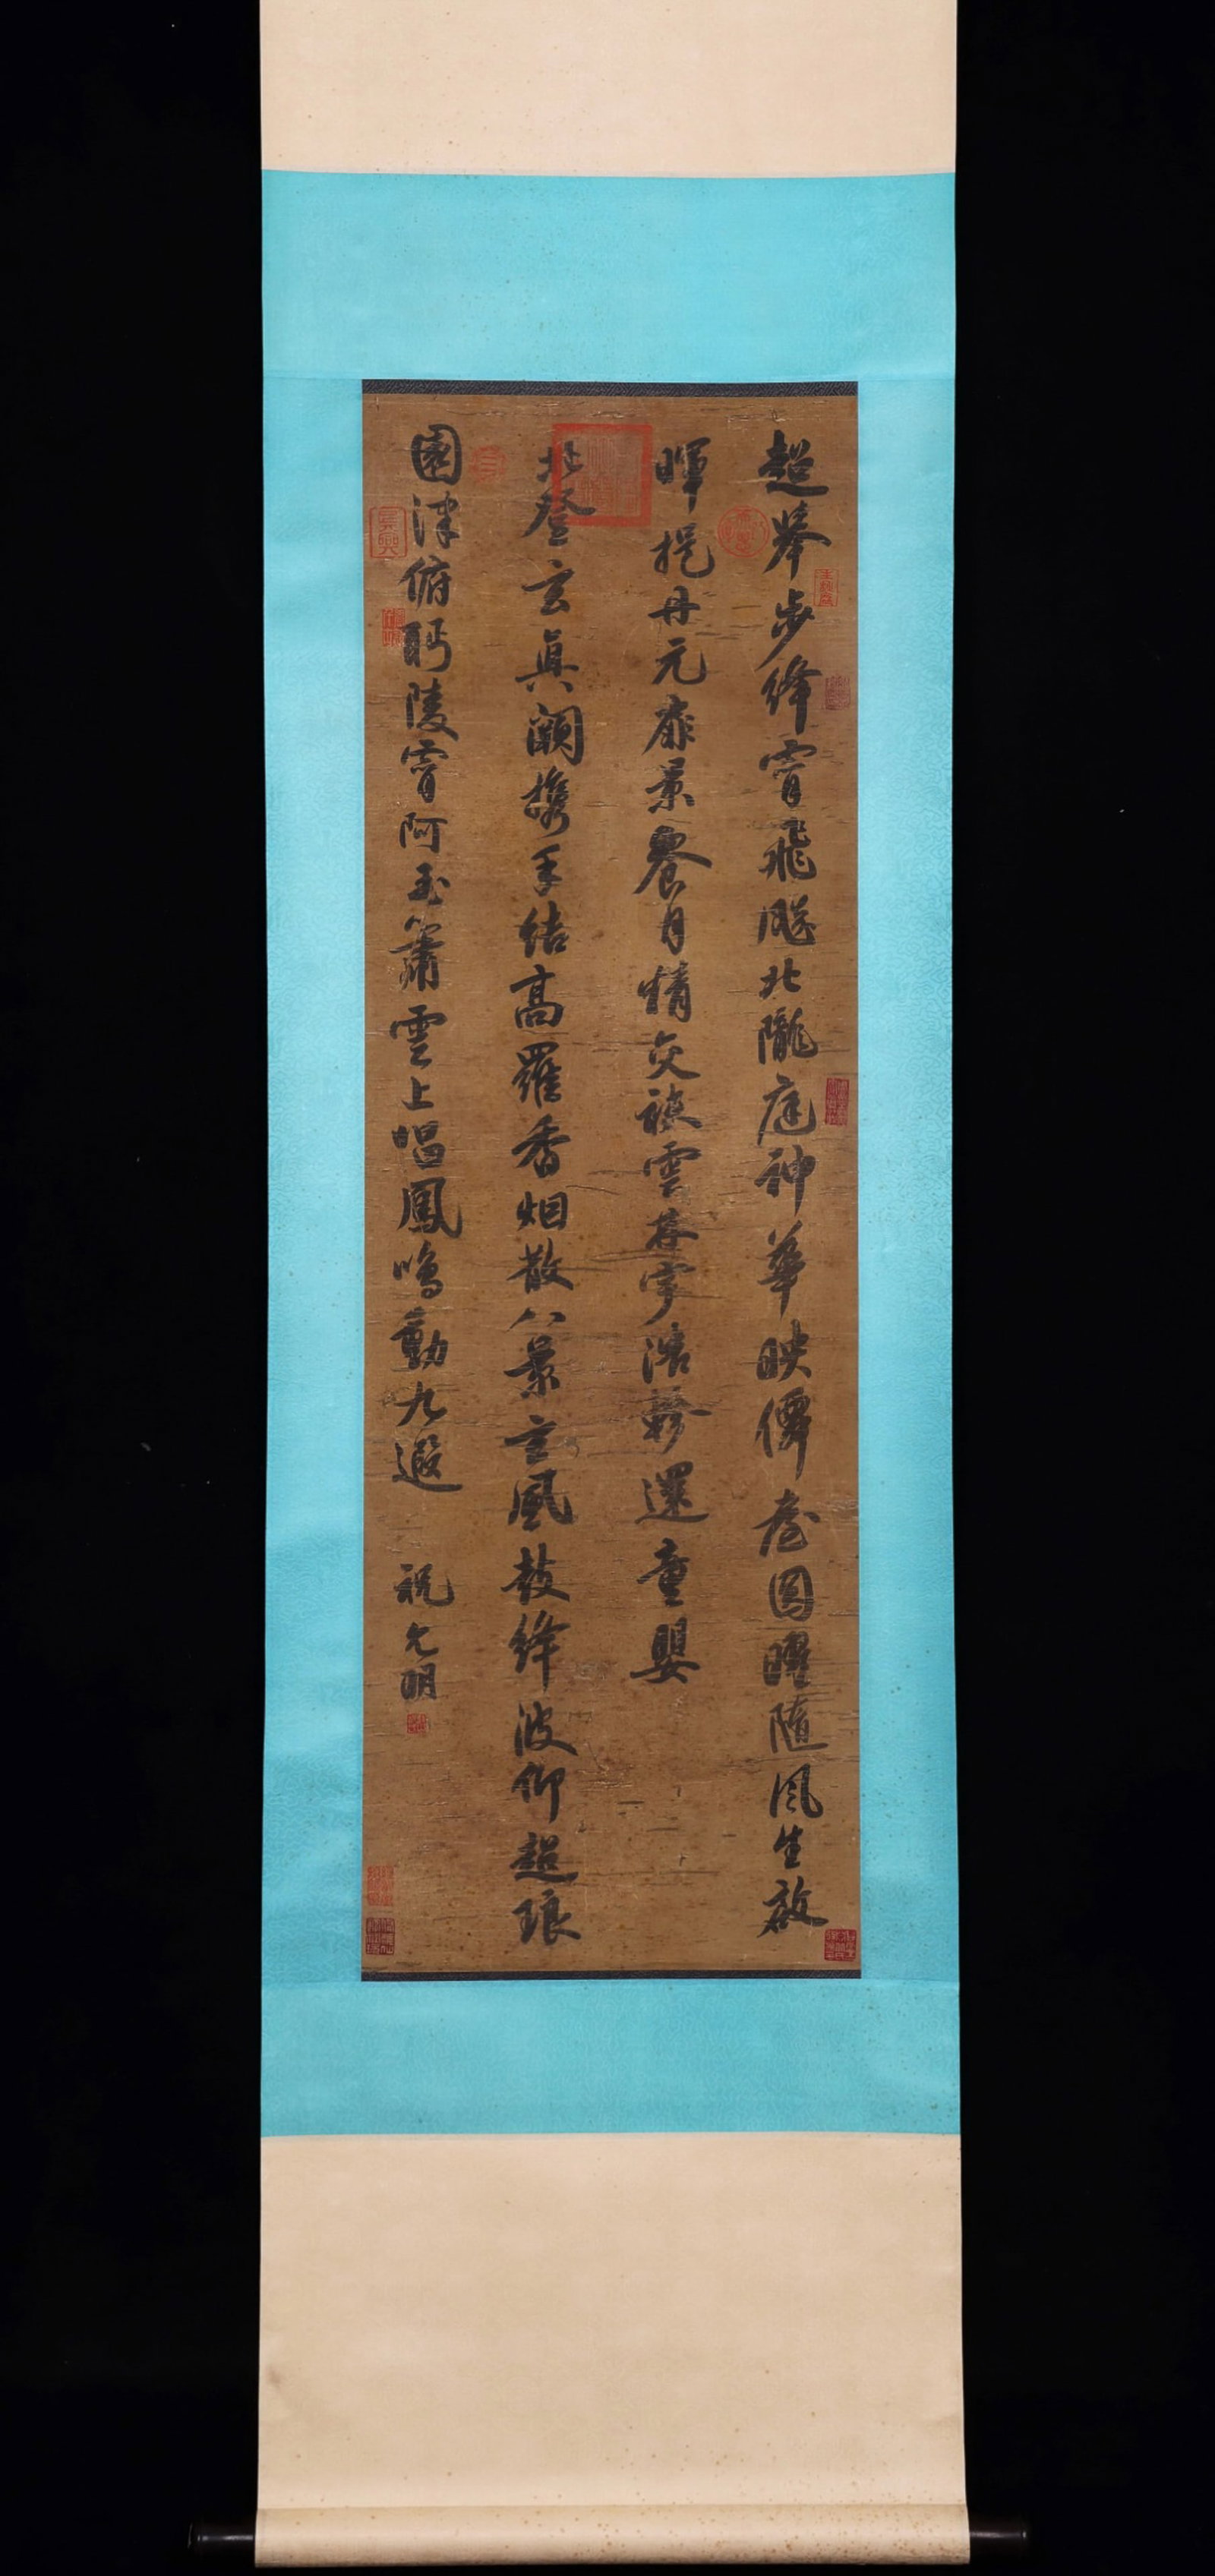 超舉步絳霄飛飈北隴庭神華映僊臺圓曜隨風生啟
暉挹丹元扉景餐月精交袂雲林宇浩軫還童嬰
北登玄真闕攜手結高羅香烟散八景玄風鼓絳波仰超琅
園津俯眄陵霄阿玉簫雲上唱鳳鳴動九遐
祝允明